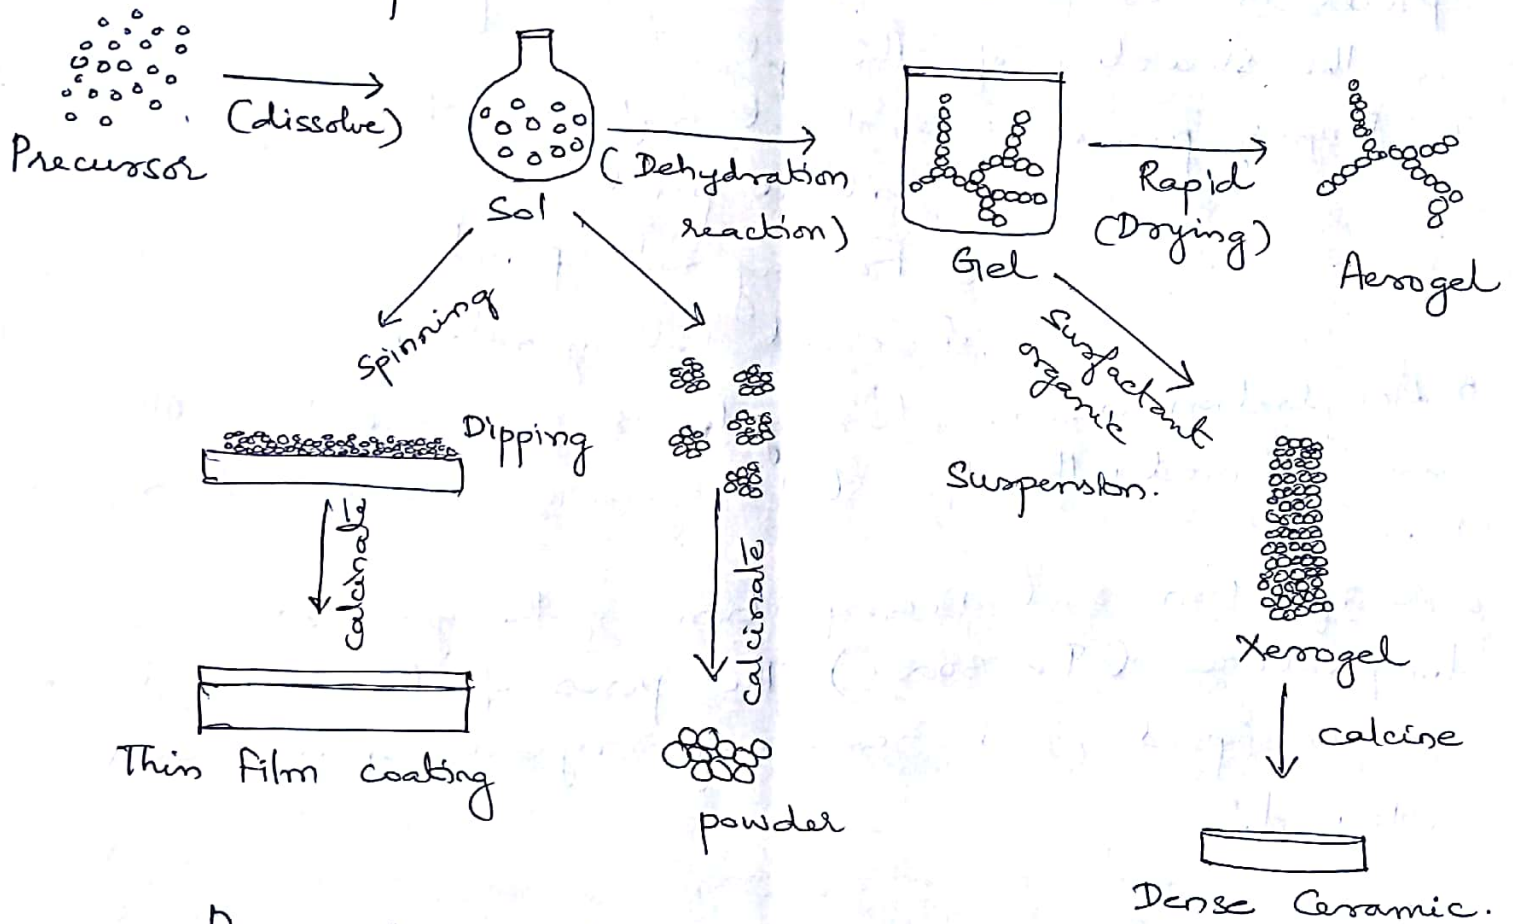 Precursor
(dissolve)
Sol
(Dehydration
reaction)
Gel
Rapid
(Drying)
Aerogel
Spinning
Dipping
Surfactant
organic
Suspension.
calcinate
Xerogel
calcine
Thin film coating
powder
Dense Ceramic.